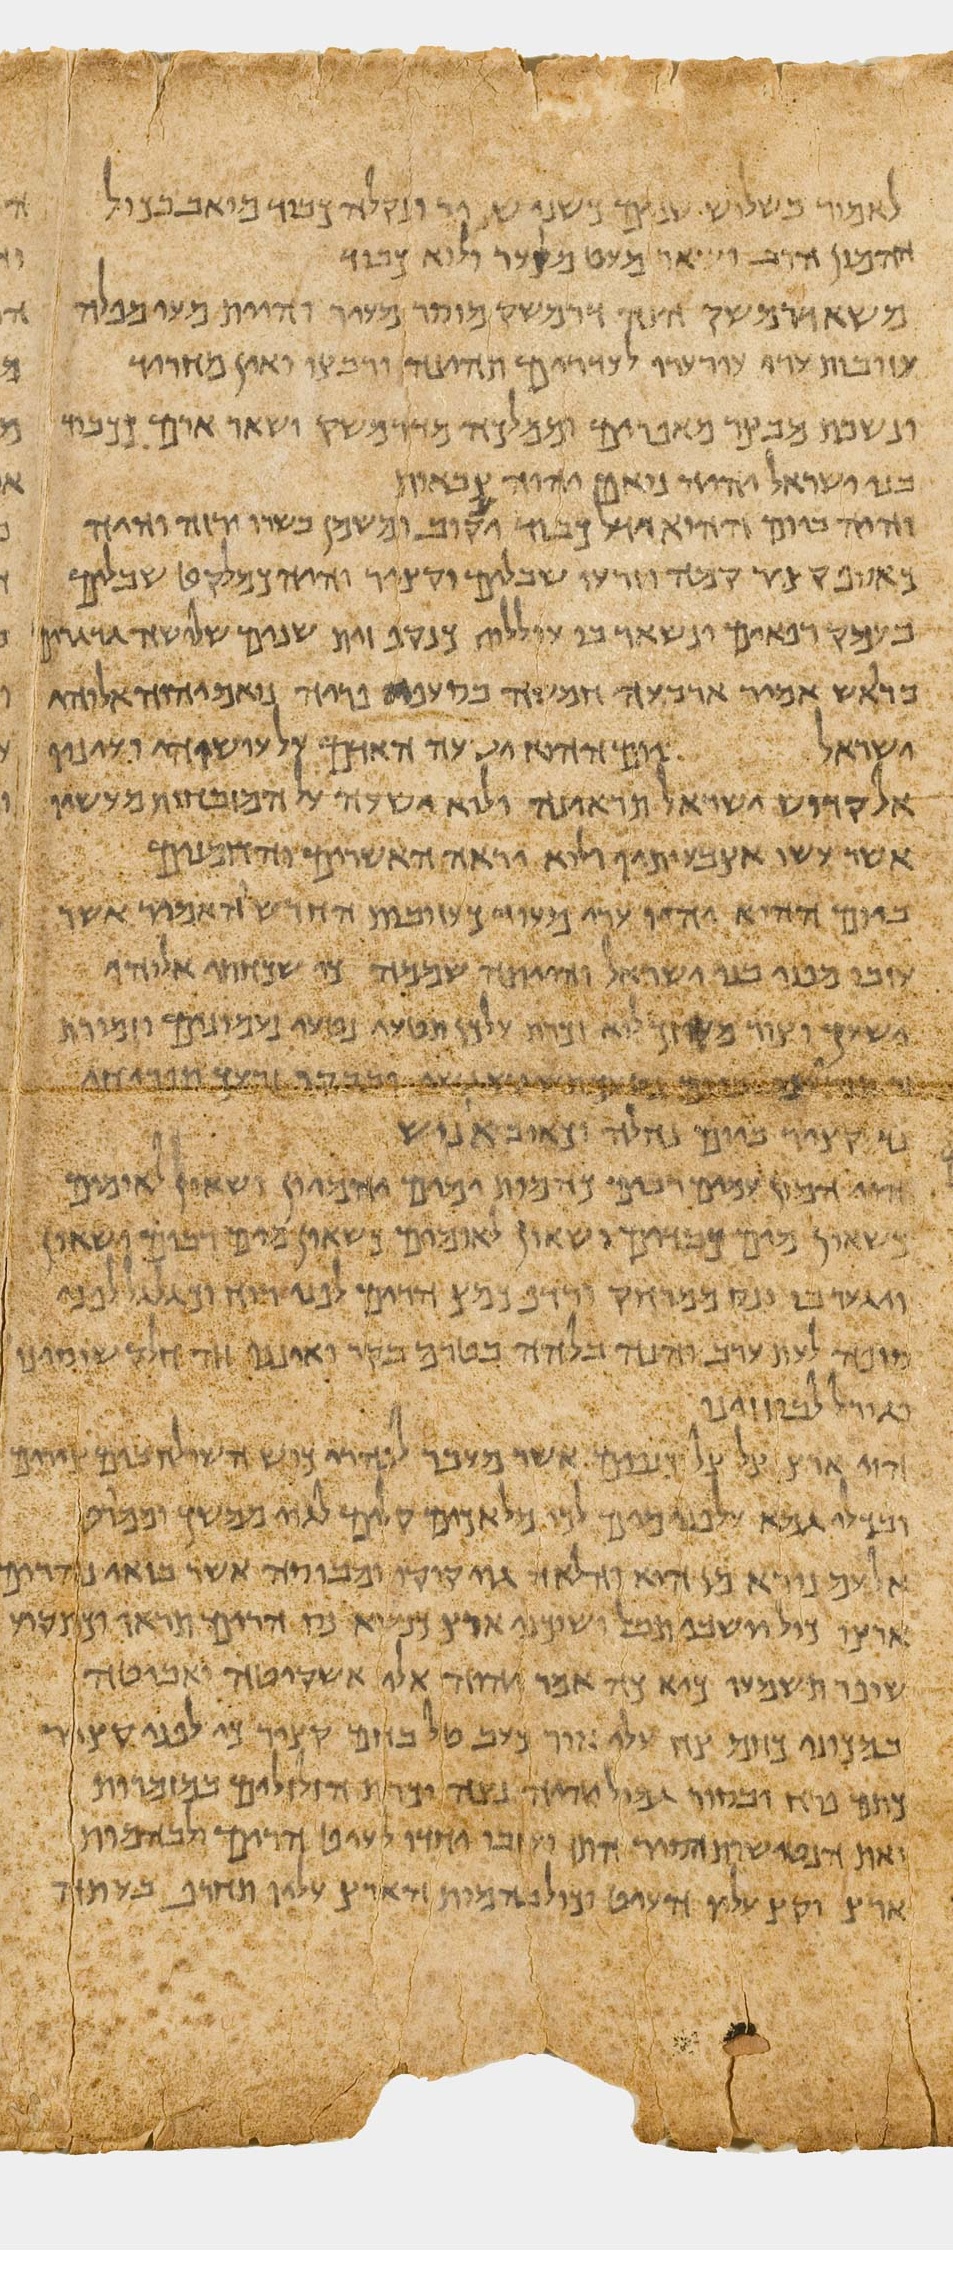 לאמור בשלוש שנים כשני שכיר ונקלה כבוד מואב בכול
ההמון הרב ושאר מעט מזער ולוא כבוד
משא דרמשק הנה דרמשק מוסר מעיר והיית מעי מפלה
עזובות ערי עורערו לעדרים תהיינה ורבצו ואין מחריד
ונשבת מבצר מאפרים וממלכה מדרמשק ושאר ארם ככבוד
בני ישראל יהיה נואם יהוה צבאות
והיה ביום ההוא ידל כבוד יעקוב ומשמן בשרו ירזה והיה
כאוסף קציר קמה וזרעו שבלים יקצור והיה כמלקט שבלים
בעמק רפאים ונשאר בו עוללות כנקף זית שנים שלושה גרגרים
בראש אמיר ארבעה חמשה בסעפי פריה נואם יהוה אלוהי
ישראל ביום ההוא ישעה האדם על עושהו ועיניו
אל קדוש ישראל תראינה ולוא ישעה על המזבחות מעשי
אשר עשו אצבעותיו ולוא יראה האשרים והחמנים
ביום ההוא יהיו ערי מעוזו כעזובת החרש והאמיר אשר
עזבו מפני בני ישראל והייתה שממה כי שכחתי אלוהי
ישעך וצור מעוזך לוא זכרת על כן תטעי נטעי נעמונים וזמורת
ביום נטעך ובבקר זרעך תפריחי
נד קציר ביום נחלה וכאוב אנוש
הוי המון עמים רבים כהמות ימים יהמיון ושאון לאומים
כשאון מים כבדים ישאון לאומים כשאון מים רבים ישאון
ויגער בו ונס ממרחק ורדף כמץ הרים לפני רוח וכגלגל לפני
סופה לעת ערב והנה בלהה בטרם בקר ואיננו זה חלק שוסינו
וגורל לבוזזינו
הוי ארץ צלצל כנפים אשר מעבר לנהרי כוש השולח בים צירים
ובכלי גמא על פני מים לכו מלאכים קלים לגוי ממשך וממרט
אל עם נורא מן הוא והלאה גוי קוקו ומבוסה אשר בזאו נהרים
ארצו כול יושבי תבל ושוכני ארץ כנשוא נס הרים תראו וכתקוע
שופר תשמעו כיא כה אמר יהוה אלי אשקוטה ואביטה
במכוני כחום צח עלי אור כעב טל בחום קציר כי לפני קציר
כתם פרח ובסור גמול יהיה נצה וכרת הזלזלים במזמרות
ואת הנטישות הסיר התז ועזבו יחדו לעיט הרים ולבהמות
ארץ וקץ עליו העיט וכול בהמות הארץ עליו תחרף בעת הזה